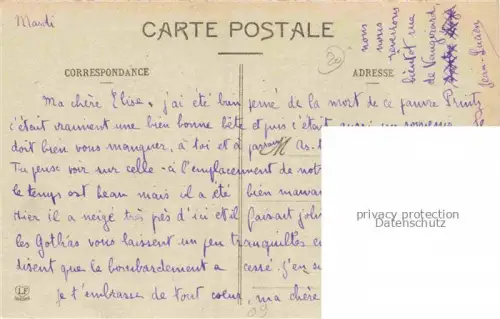 Mardi
CARTE POSTALE
CORRESPONDANCE
ADRESSE
Ma chère Elise, j'ai été bien peiné de la mort de ce pauvre Prints
c'était vraiment une bien bonne bête et puis c'était aussi un
doit bien vous manquer, à toi et à As-t
Tu peux voir sur celle-ci l'emplacement de notr
le temps est beau mais il a été bien mauvai
Hier il a neigé très près d'ici et il faisait joli
les Gothas vous laissent un peu tranquilles e
disent que le bombardement a cessé. J'en su
je t'embrasse de tout coeur, ma chère
nous
nous
reverrons
bientôt rue
de Vaugirard
Jean-Lucien
20
09
LF
privacy protection
Datenschutz